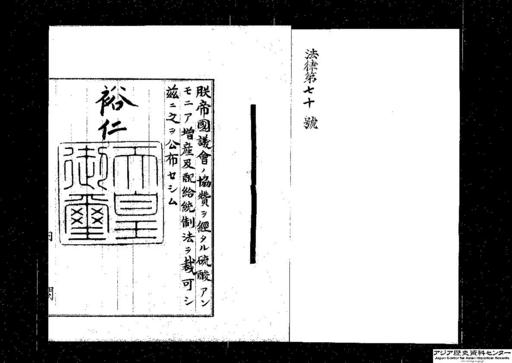 法律第七十號
朕帝國議會ノ協贊ヲ經タル硫酸アン
モニア增産及配給統制法ヲ裁可シ
玆ニ之ヲ公布セシム
裕仁
天皇
御璽
内閣
アジア歴史資料センター
Japan Center for Asian Historical Records